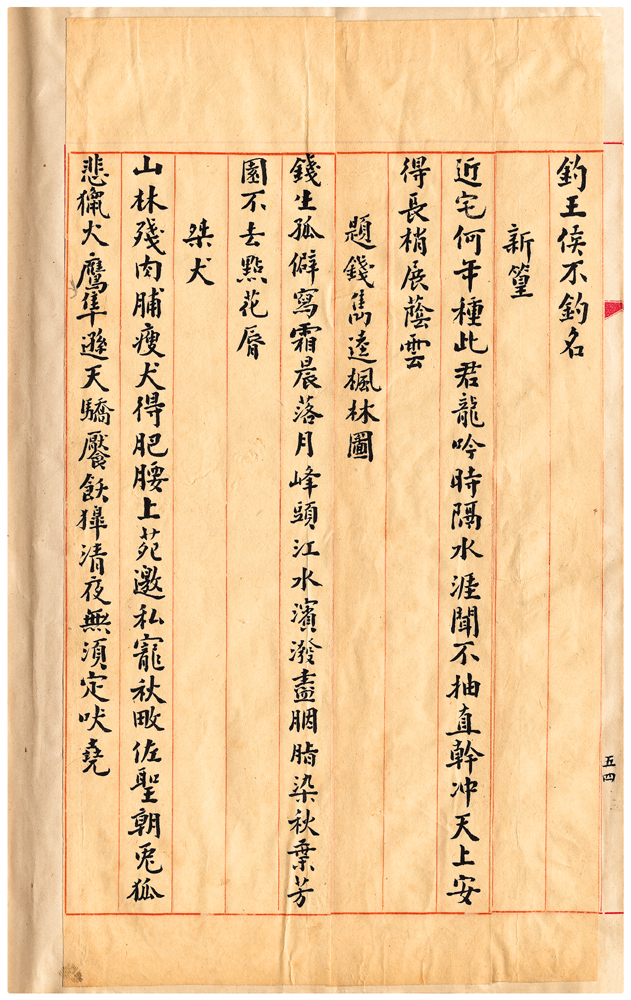 釣王侯不釣名
新篁
近宅何年種此君龍吟時隔水涯聞不抽直幹冲天上安
得長梢展蔭雲
題錢雋逵楓林圖
錢生孤僻寫霜晨落月峰頭江水濱潑盡胭脂染秋葉芳
園不去點花脣
桀犬
山林殘肉脯瘦犬得肥腰上苑邀私寵秋畋佐聖朝兎狐
悲獵犬鷹隼遜天驕饜飫獋清夜無須定吠堯
五四